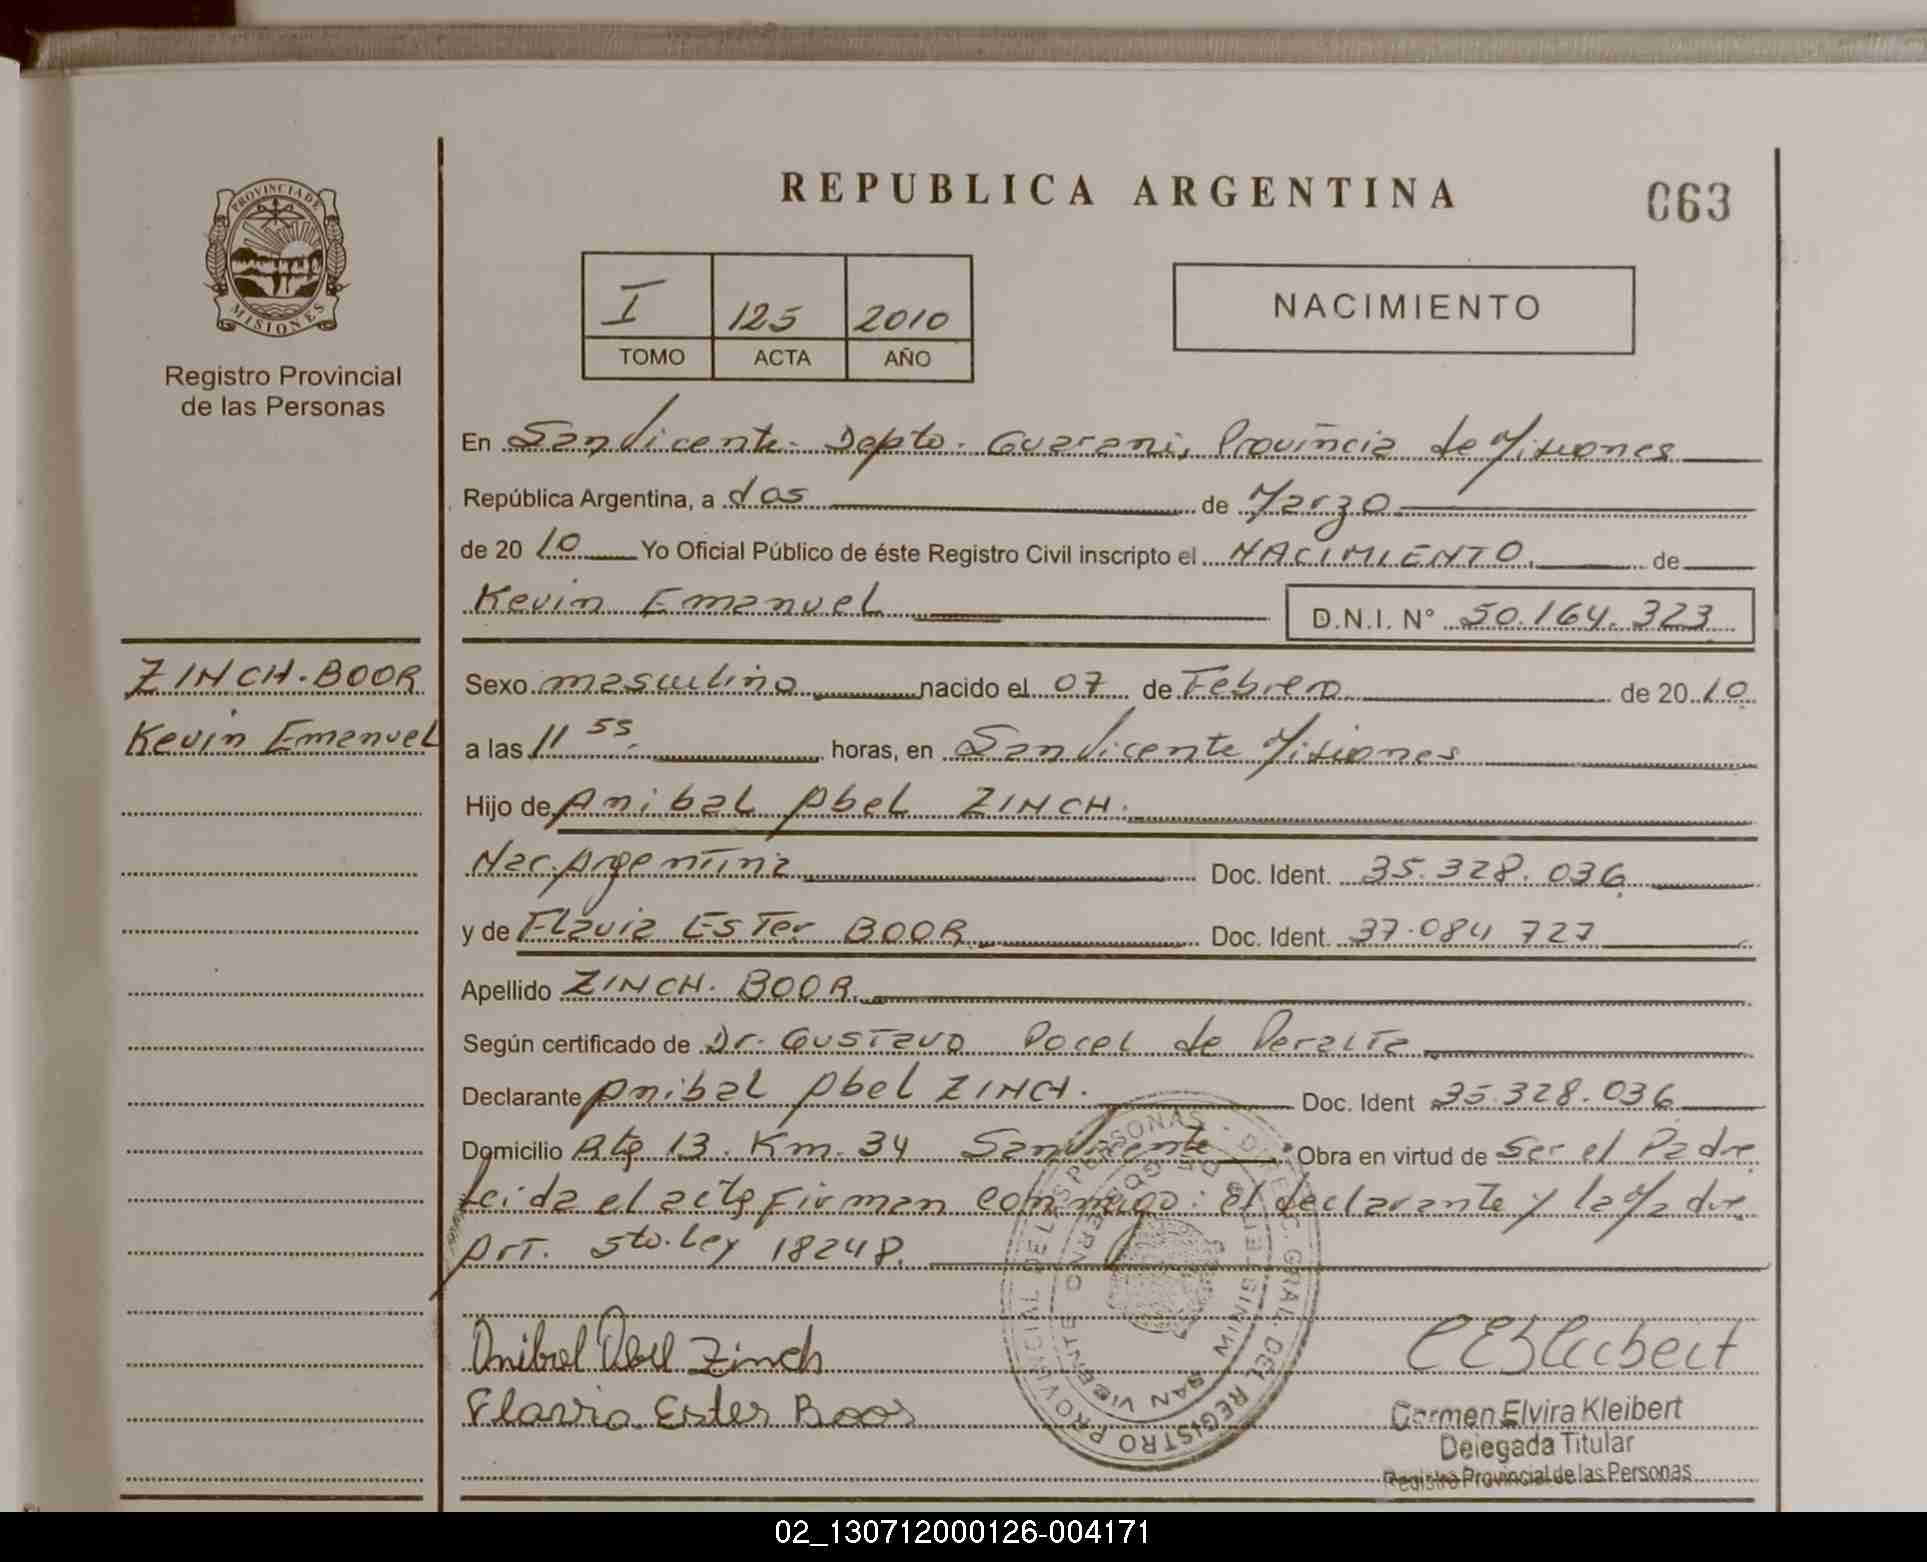 REPUBLICA ARGENTINA
063
PROVINCIA DE
MISIONES
Registro Provincial
de las Personas
I 125 2010
TOMO ACTA AÑO
NACIMIENTO
En San Vicente - Depto - Guarani, Provincia de Misiones
República Argentina, a dos de Marzo
de 20 10 Yo Oficial Público de éste Registro Civil inscripto el NACIMIENTO. de
Kevin Emanuel D.N.I. N° 50.164.323
ZINCH. BOOR
Kevin Emanuel
Sexo masculino nacido el 07 de Febrero de 20 10
a las 11 55. horas, en San Vicente Misiones
Hijo de Anibal Abel ZINCH.
Nac. Argentina Doc. Ident. 35.328.036
y de Flavia Ester BOOR Doc. Ident. 37.084 727
Apellido ZINCH. BOOR
Según certificado de Dr. Gustavo Pocel de Peralta
Declarante Anibal Abel ZINCH. Doc. Ident 35.328.036
Domicilio Rta 13. Km. 34 San Vicente Obra en virtud de ser el Padre
Leida el acta Firman conmigo: el declarante y la Madre
Art. 5to. Ley 18248.
Anibal Abel Zinch
Flavia Ester Boor
REGISTRO PROVINCIAL DE LAS PERSONAS - DIREC. GRAL. DEL
SAN VICENTE
MINISTERIO DE GOBIERNO
CEKleibert
Carmen Elvira Kleibert
Delegada Titular
Registro Provincial de las Personas
02_130712000126-004171